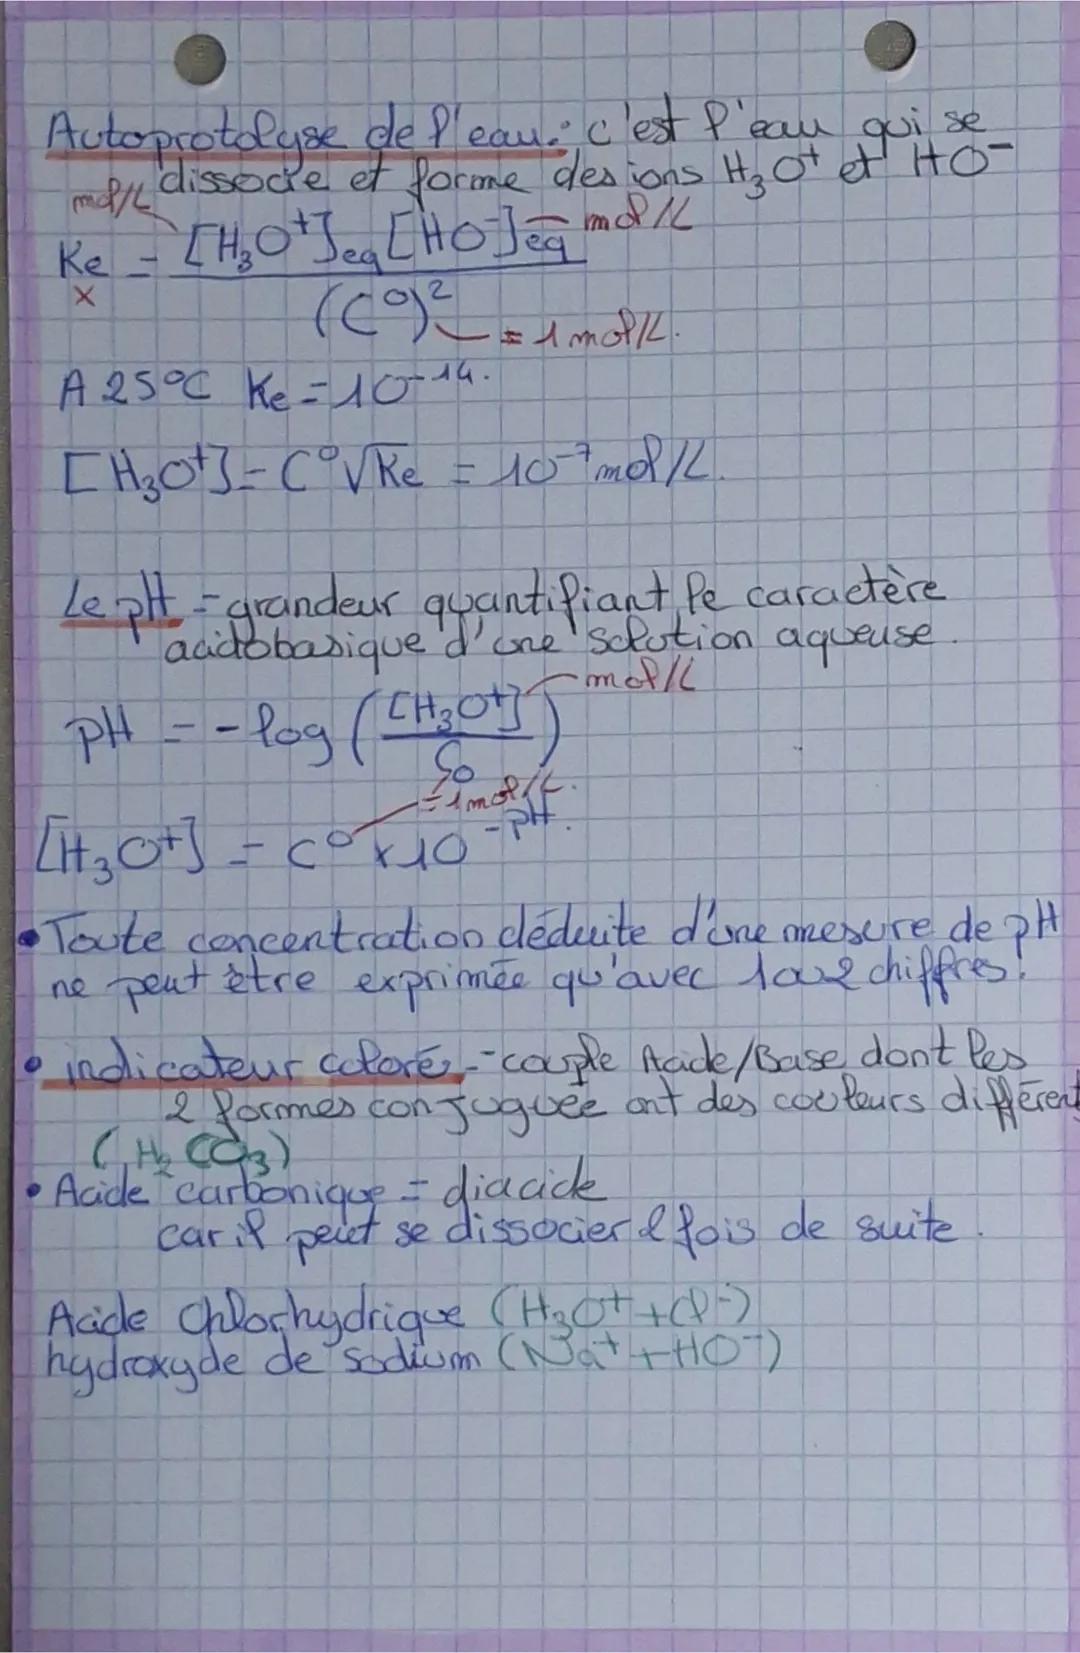 Autoprotolyse de l'eau : c'est l'eau qui se
dissocie et forme des ions H₃O⁺ et HO⁻
mol/L
Ke = [H₃O⁺]eq [HO⁻]eq mol/L
x
(C°)² = 1 mol/L.
A 25°C Ke = 10⁻¹⁴.
[H₃O⁺] = C°√Ke = 10⁻⁷ mol/L.
Le pH = grandeur quantifiant le caractère
acidobasique d'une solution aqueuse.
mol/L
pH = -log ([H₃O⁺]/C°)
= 1 mol/L.
[H₃O⁺] = C° x 10⁻ᵖᴴ.
• Toute concentration déduite d'une mesure de pH
ne peut être exprimée qu'avec 1 ou 2 chiffres!
• indicateur coloré = couple Acide/Base dont les
2 formes conjuguée ont des couleurs différent
(H₂CO₃)
• Acide carbonique = diacide
car il peut se dissocier 2 fois de suite.
Acide Chlorhydrique (H₃O⁺ + Cl⁻)
hydroxyde de sodium (Na⁺ + HO⁻)